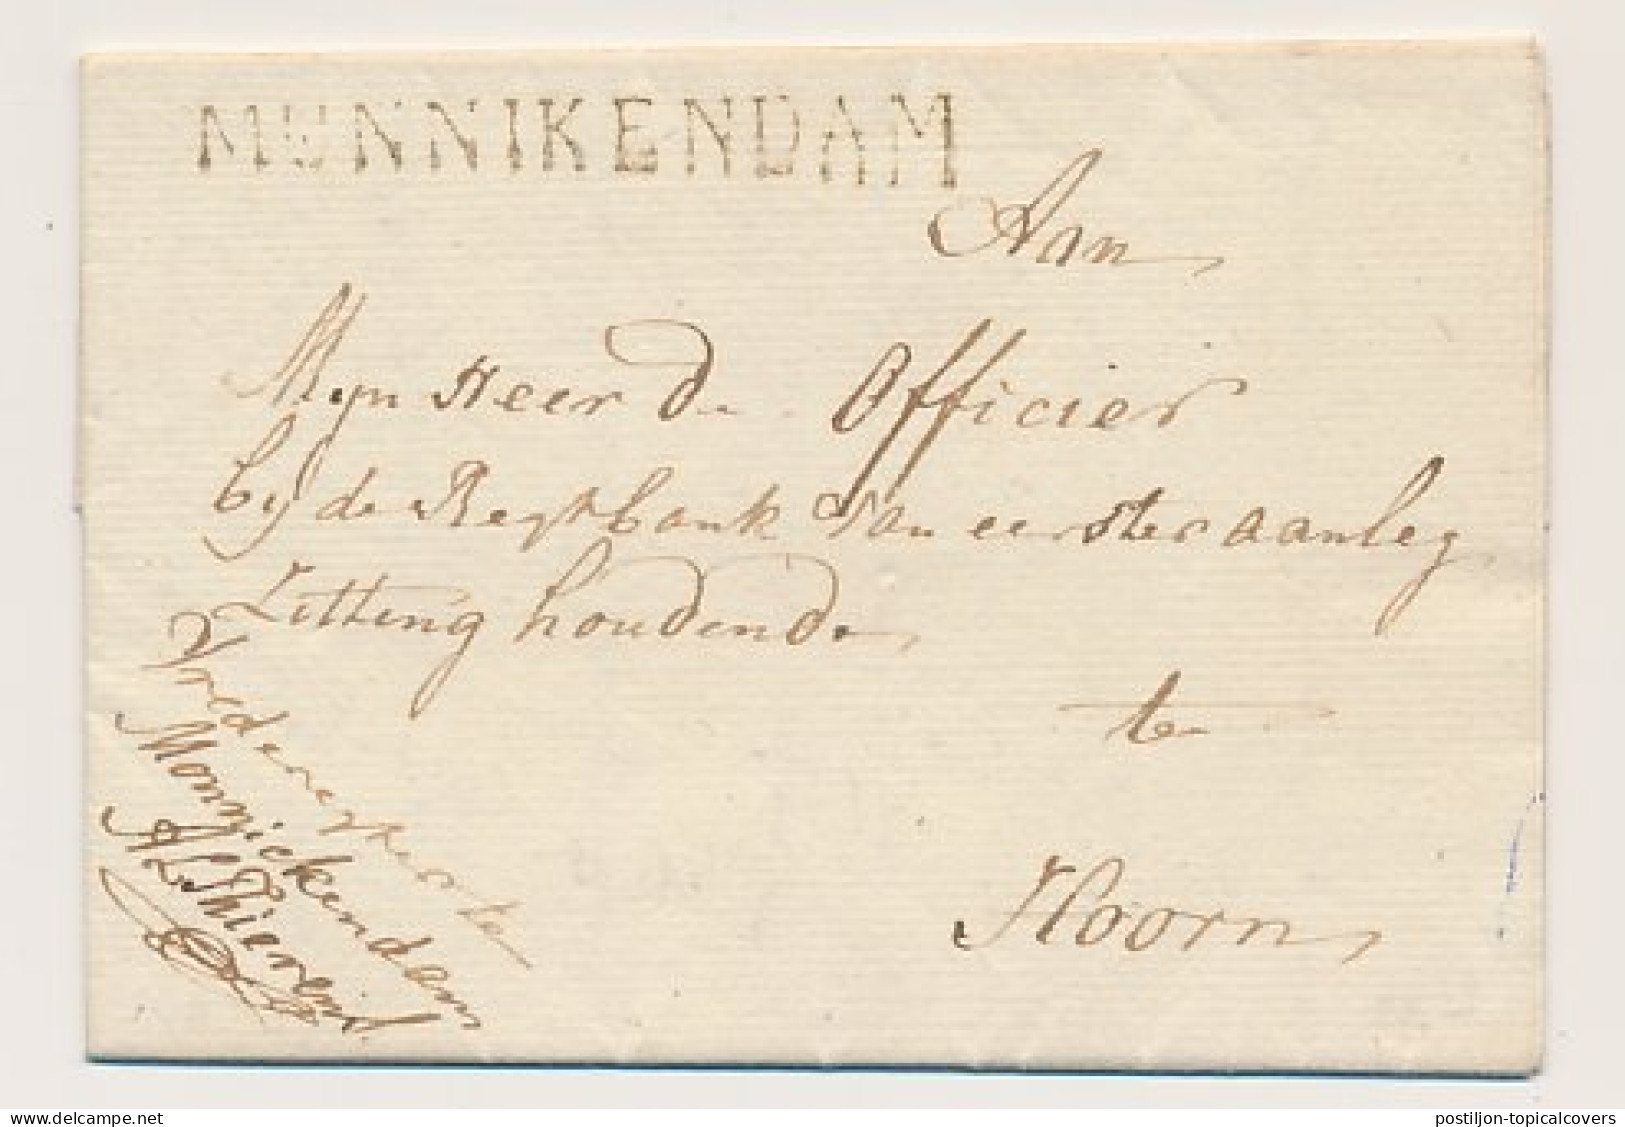 MUNNIKENDAM
Aan
Mijn Heer de Officier
bij de Regtbank van eerster aanleg
Zitting houdende
te
Hoorn
Vrederegter te
Monnickendam
delcampe.net
postiljon-topicalcovers